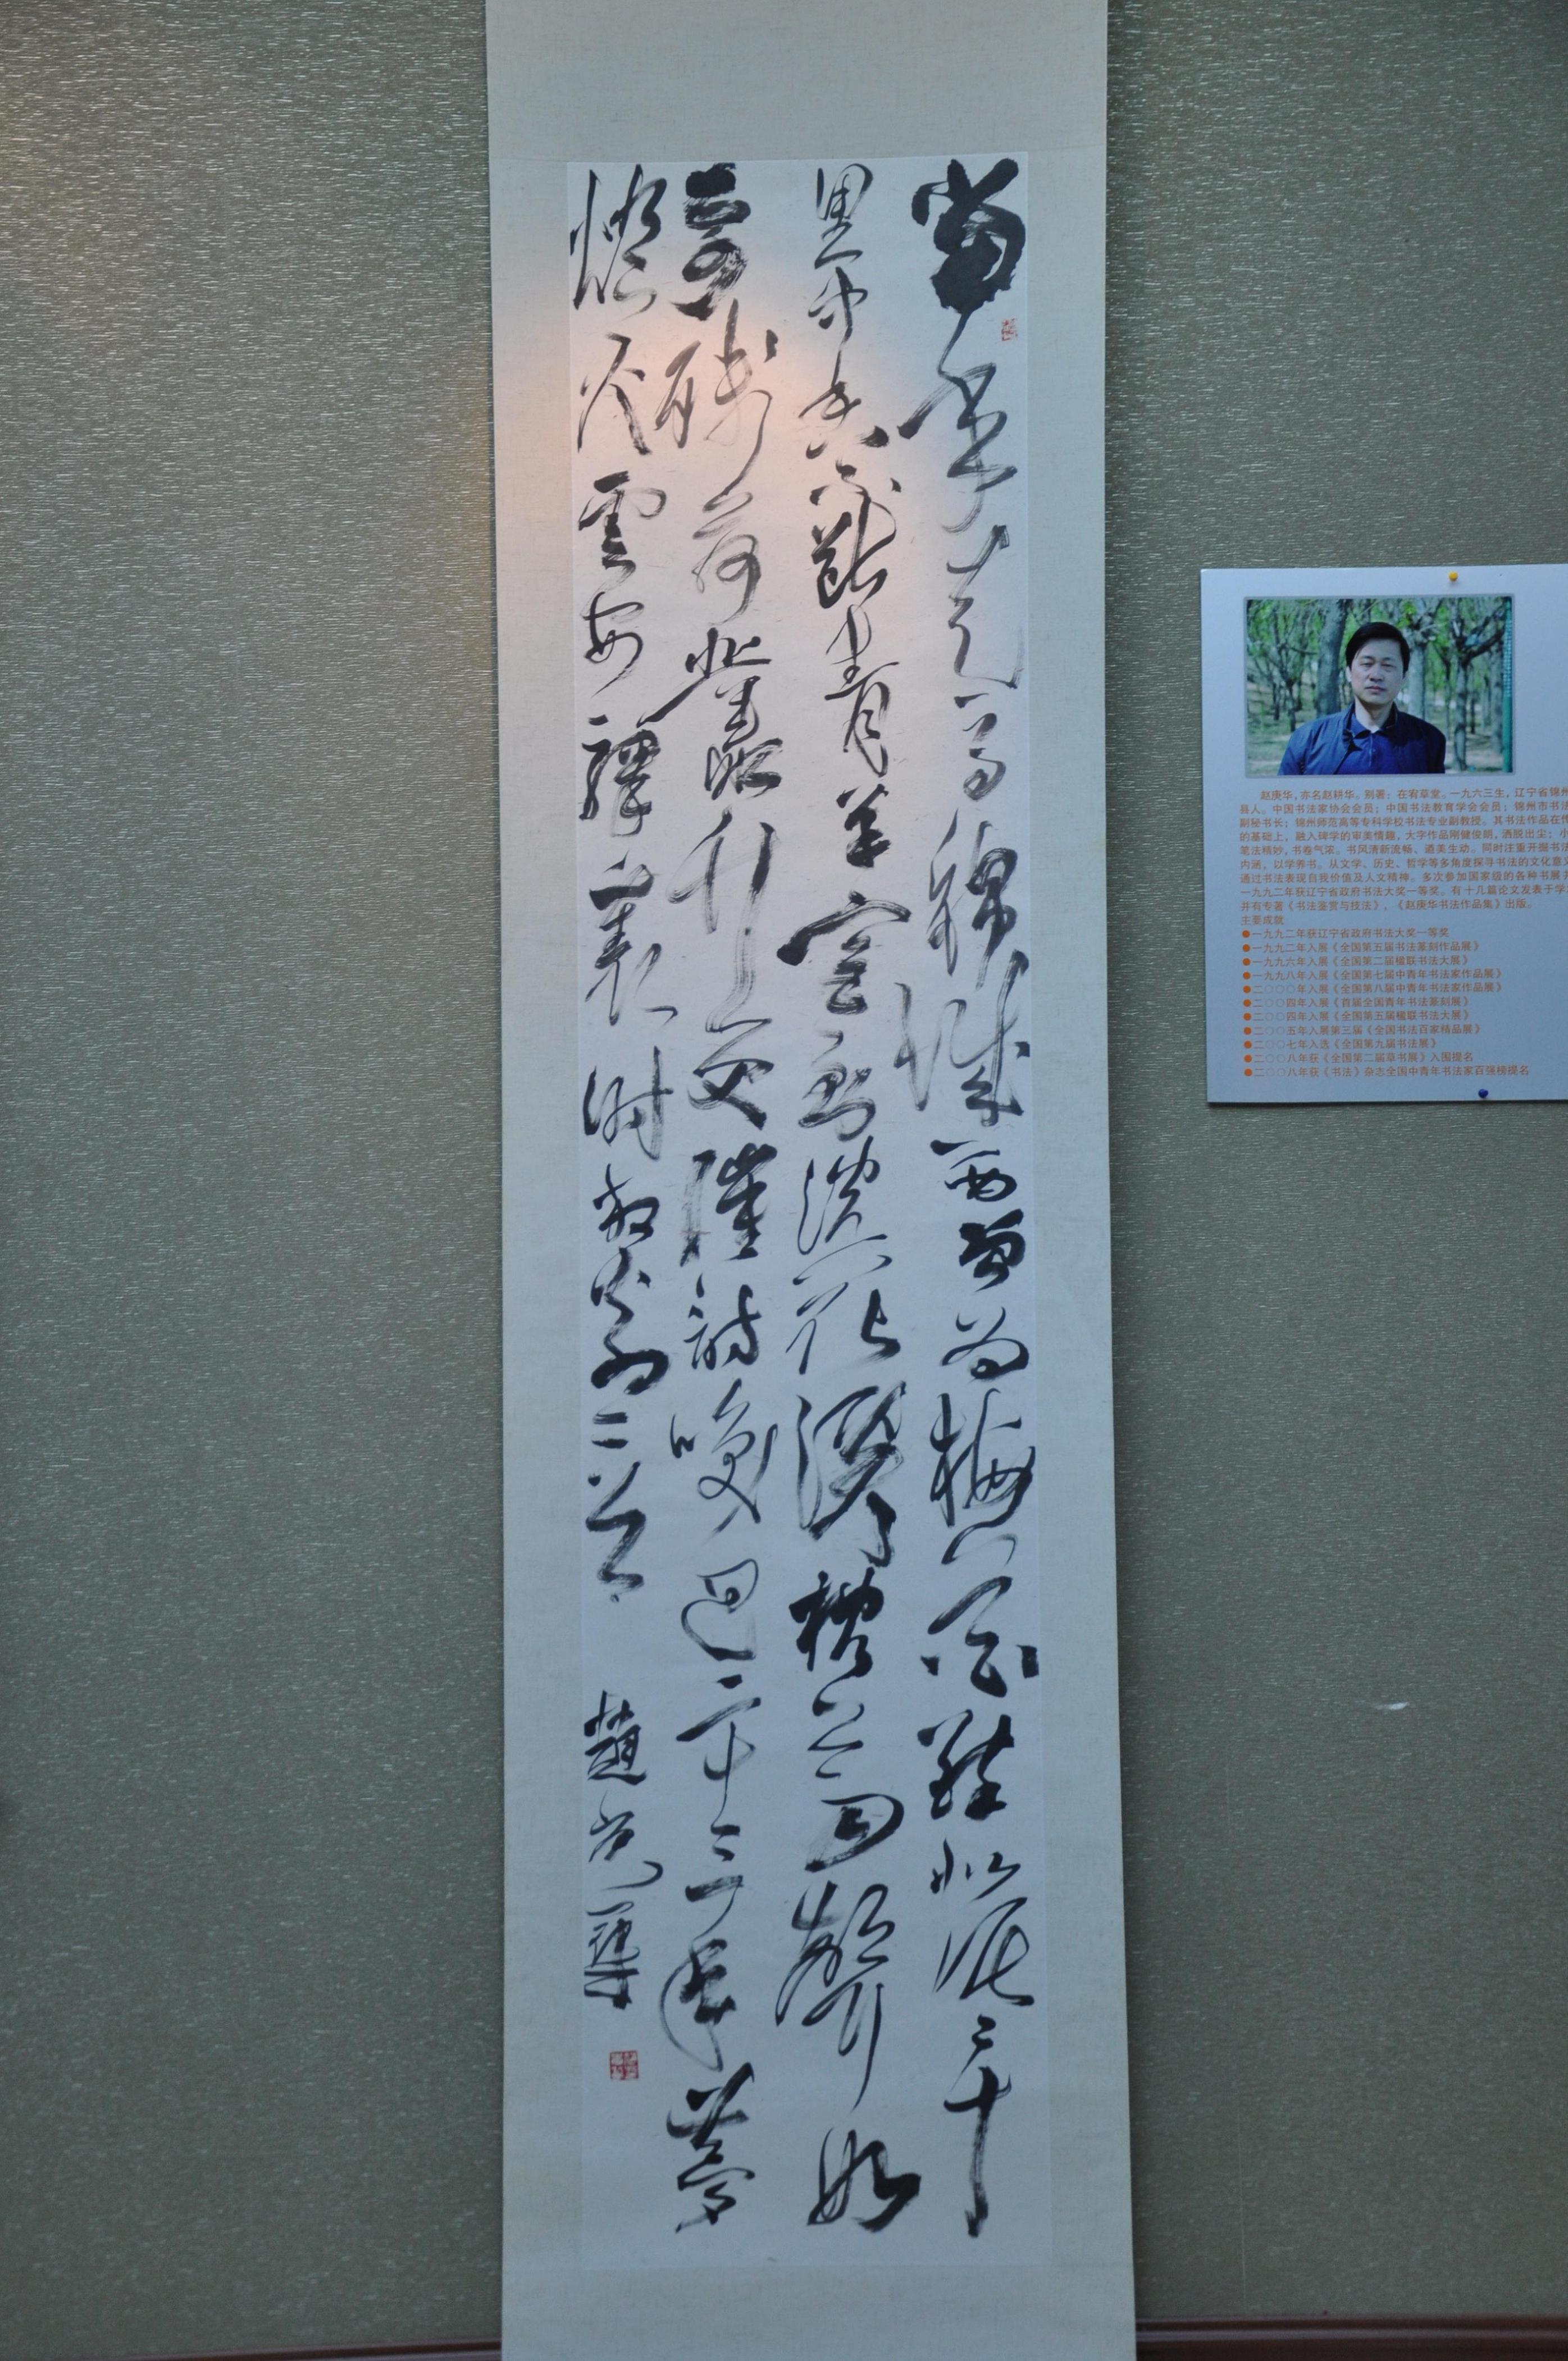 当年走马锦城西曾为梅花醉似泥二十
里中香不断青羊宫到浣花溪
更催诗唤回二十三年梦
灯火云安驿里时放翁二首
赵庚华，亦名赵耕华。别署：在宥草堂。一九六三生，辽宁省锦州
县人。中国书法家协会会员；中国书法教育学会会员；锦州市书法
副秘书长；锦州师范高等专科学校书法专业副教授。其书法作品在传
的基础上、融入碑学的审美情趣，大字作品刚健俊朗，洒脱出尘；小
笔法精妙，书卷气浓。书风清新流畅、遒美生动。同时注重开掘书法
内涵，以学养书。从文学、历史、哲学等多角度探寻书法的文化意义
通过书法表现自我价值及人文精神。多次参加国家级的各种书展并
一九九二年获辽宁省政府书法大奖一等奖。有十几篇论文发表于学
并有专著《书法鉴赏与技法》，《赵庚华书法作品集》出版。
主要成就
●一九九二年获辽宁省政府书法大奖一等奖
●一九九二年入展《全国第五届书法篆刻作品展》
●一九九六年入展《全国第二届楹联书法大展》
●一九九八年入展《全国第七届中青年书法家作品展》
●二〇〇〇年入展《全国第八届中青年书法家作品展》
●二〇〇四年入展《首届全国青年书法篆刻展》
●二〇〇四年入展《全国第五届楹联书法大展》
●二〇〇五年入展第三届《全国书法百家精品展》
●二〇〇七年入选《全国第九届书法展》
●二〇〇八年获《全国第二届草书展》入围提名
●二〇〇八年获《书法》杂志全国中青年书法家百强榜提名